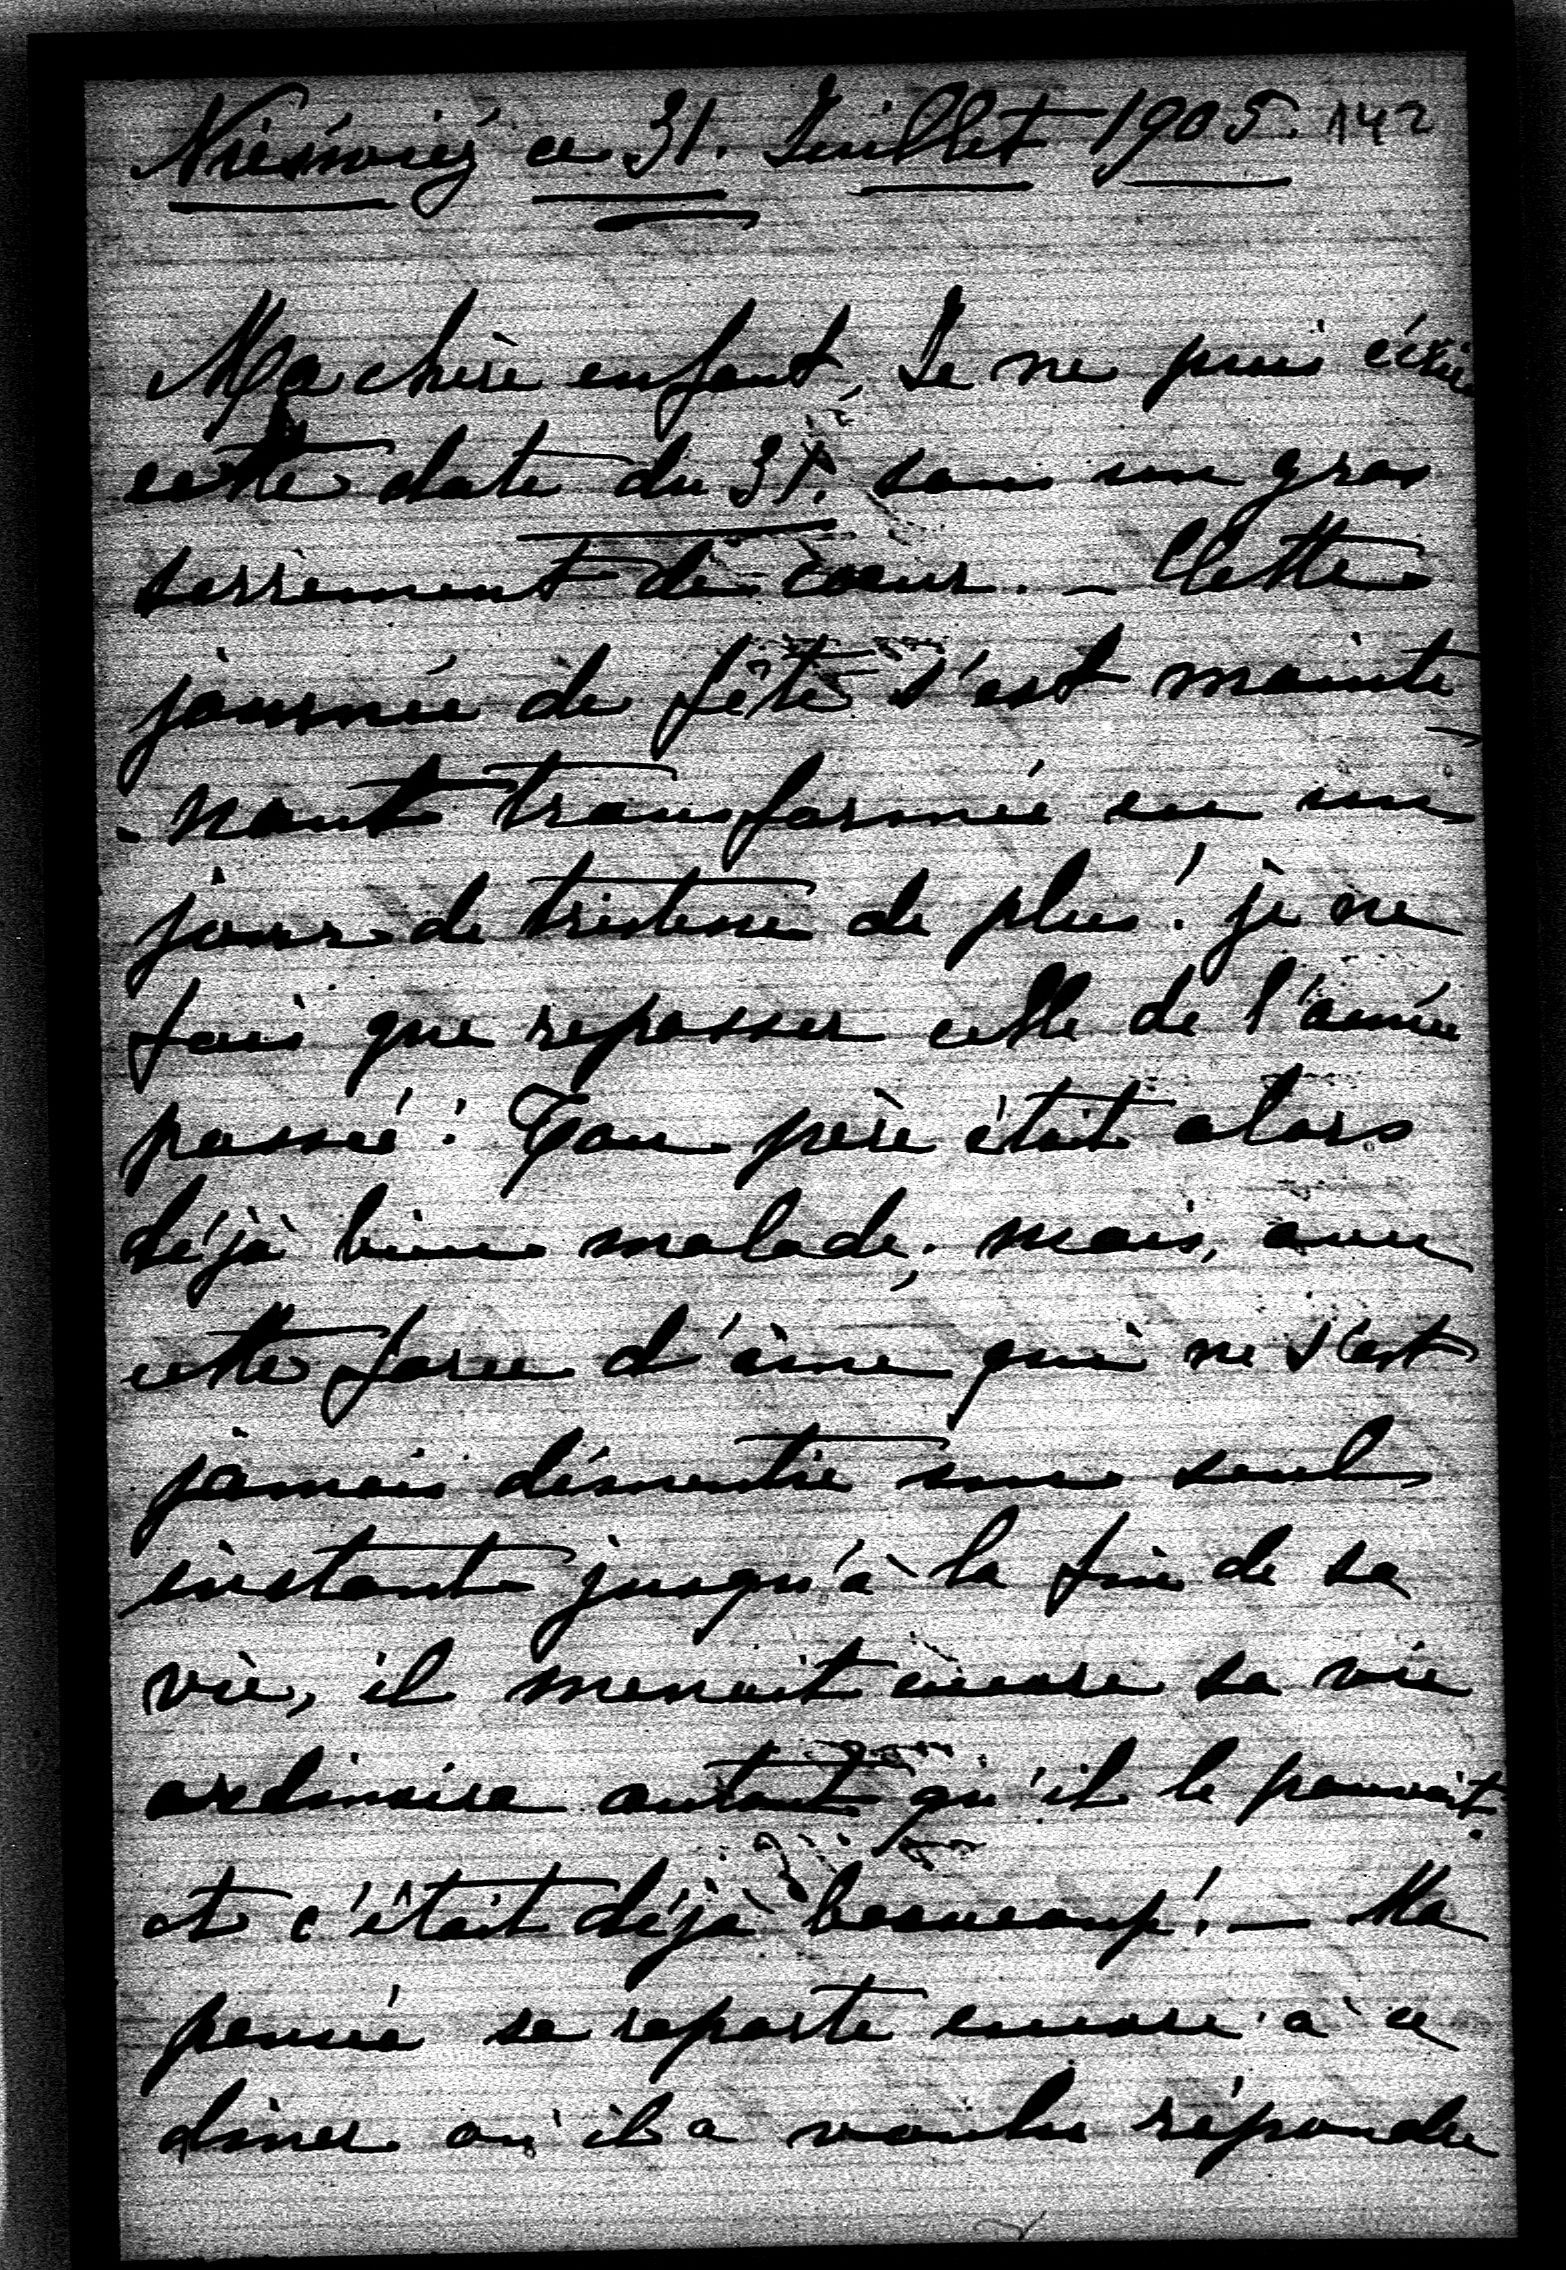 Nieswiez ce 31. Juillet 1905. 142
Ma chère enfant, Je ne puis écrire
cette date du 31. sans un gros
serrement de coeur. – Cette
journée de fête s'est mainte-
-nant transformée en un
jour de tristesse de plus! je ne
fais que repasser celle de l'année
passée! Ton père était alors
déjà bien malade; mais, avec
cette force d'âme qui ne s'est
jamais démentie un seul
instant jusqu'à la fin de sa
vie, il menait encore sa vie
ordinaire autant qu'il le pouvait.
et c'était déjà beaucoup! – Ma
pensée se reporte encore à ce
dîner où il a voulu répondre